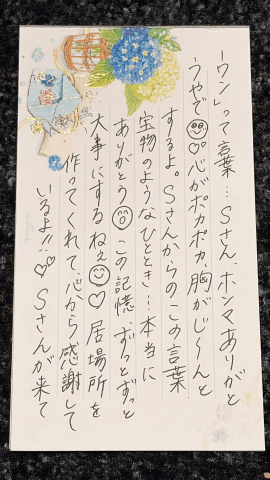 ーウン」って言葉…Sさん、ホンマありがと
うやで😊♡心がポカポカ、胸がじ〜んと
するよ。Sさんからのこの言葉
宝物のようなひととき…本当に
ありがとう😊この記憶、ずっとずっと
大事にするねぇ😊♡居場所を
作ってくれて、心から感謝して
いるよ!!♡♡Sさんが来て